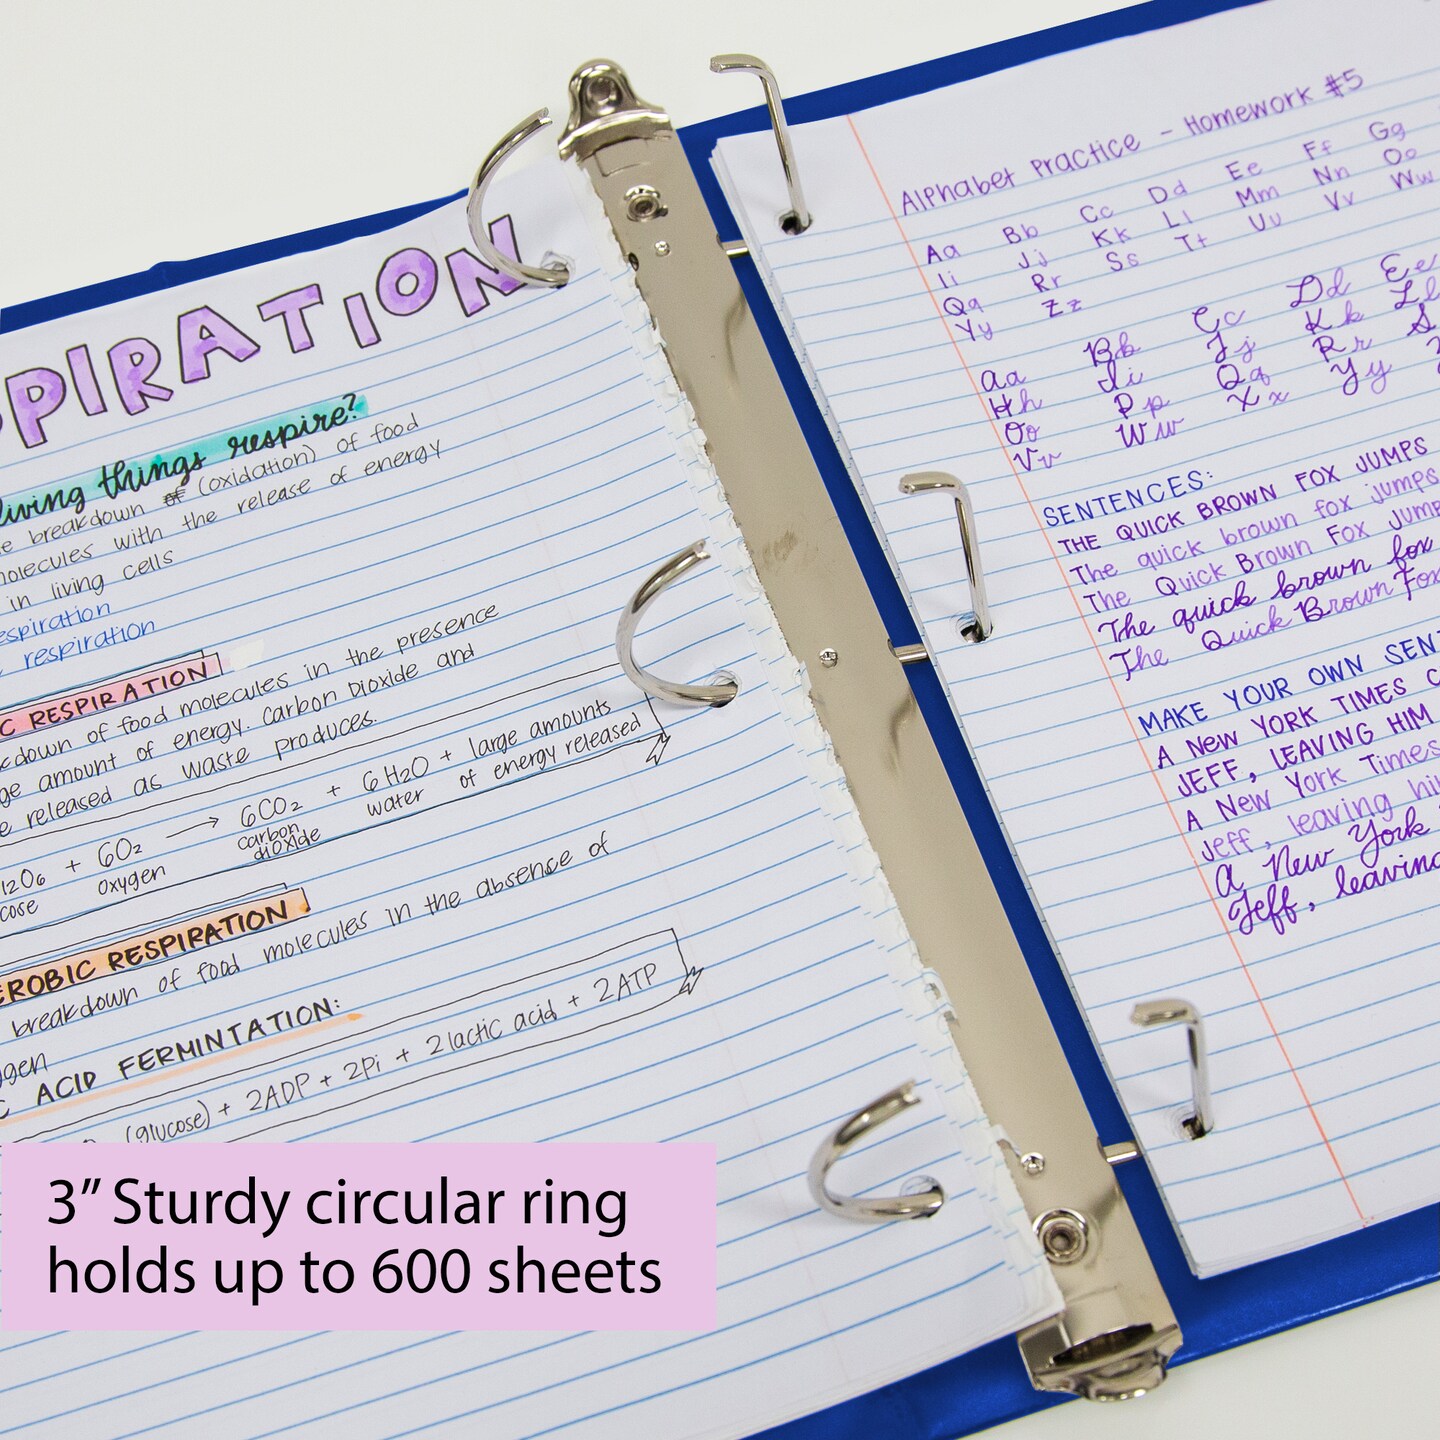 PIRATION
living things respire?
breakdown of (oxidation) of food
molecules with the release of energy
in living cells
respiration
respiration
C RESPIRATION
kdown of food molecules in the presence
ge amount of energy. Carbon Dioxide and
e released as waste produces.
12O6 + 6O2 → 6CO2 + 6H2O + large amounts
of energy released
cose oxygen carbon dioxide water
EROBIC RESPIRATION
breakdown of food molecules in the absence of
gen
C ACID FERMINTATION:
(glucose) + 2ADP + 2Pi + 2 lactic acid + 2ATP
3” Sturdy circular ring
holds up to 600 sheets
Alphabet Practice - Homework #5
Aa Bb Cc Dd Ee Ff Gg
Ii Jj Kk Ll Mm Nn Oo
Qq Rr Ss Tt Uu Vv Ww
Yy Zz
Aa Bb Cc Dd Ee
Hh Ii Jj Kk Ll
Oo Pp Qq Rr S
Vv Ww Xx Yy Z
SENTENCES:
THE QUICK BROWN FOX JUMPS
The quick brown fox jumps
The Quick Brown Fox Jump
The quick brown fox
The Quick Brown Fox
MAKE YOUR OWN SENT
A New YORK TIMES C
JEFF, LEAVING HIM
A New York Times
Jeff, leaving hi
A New York
Jeff, leaving